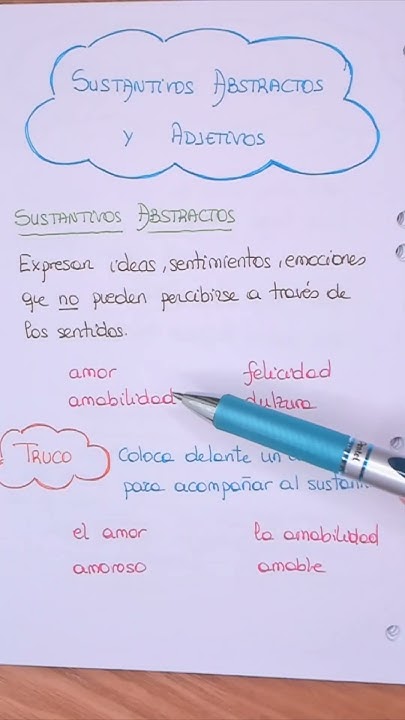 SUSTANTIVOS ABSTRACTOS
Y ADJETIVOS
SUSTANTIVOS ABSTRACTOS
Expresan ideas, sentimientos, emociones
que no pueden percibirse a través de
los sentidos.
amor felicidad
amabilidad dulzura
TRUCO Coloca delante un
para acompañar al
el amor la amabilidad
amoroso amable